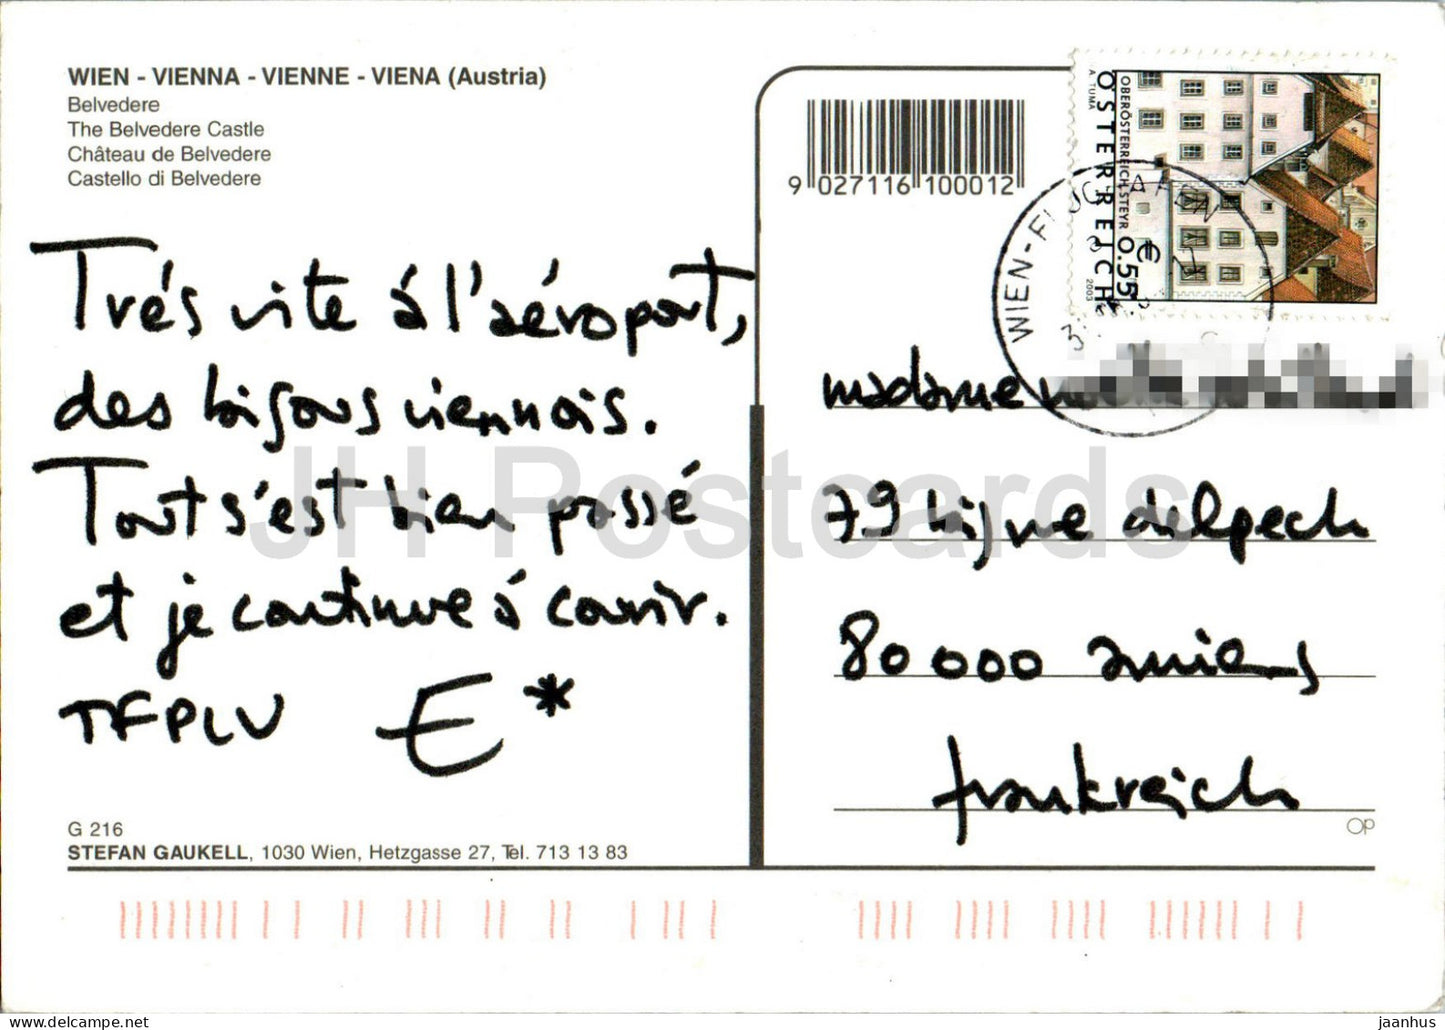 WIEN - VIENNA - VIENNE - VIENA (Austria)
Belvedere
The Belvedere Castle
Château de Belvedere
Castello di Belvedere
Trés vite à l'aéroport,
des bisous viennois.
Tout s'est bien passé
et je continue à courir.
TFPLV €*
G 216
STEFAN GAUKELL, 1030 Wien, Hetzgasse 27, Tel. 713 13 83
9 027116 100012
A. TUMA
OBERÖSTERREICH, STEYR
ÖSTERREICH
€ 0.55
2003
WIEN-FLUGHAFEN
madame
79 ligne delpech
80000 amiens
frankreich
Op
JH Postcards
jaanhus - https://www.delcampe.net
jaanhus/shop